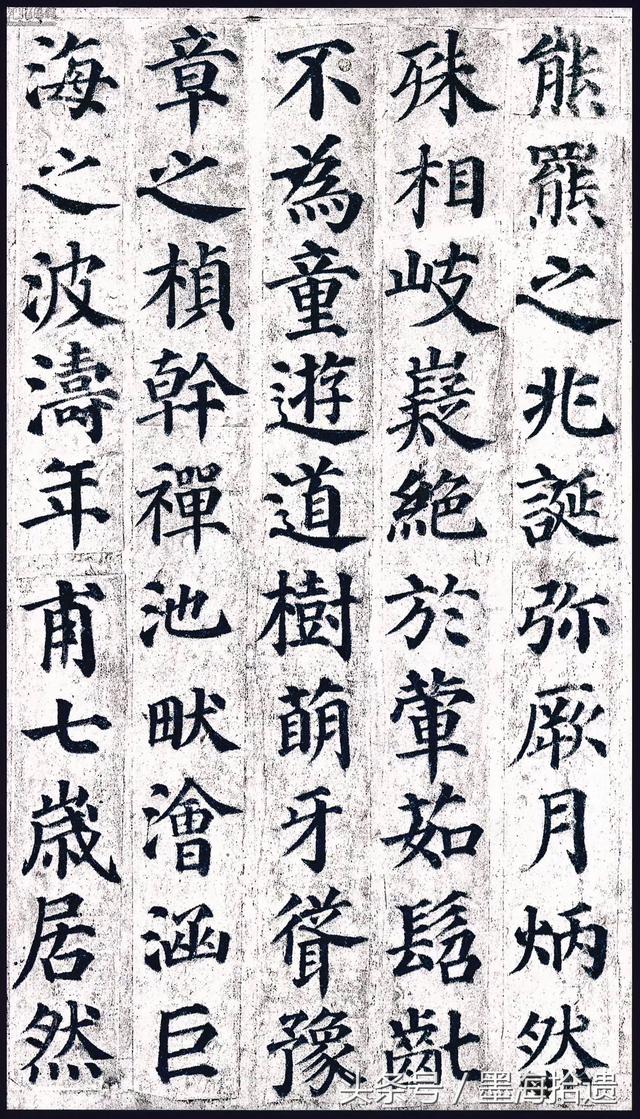 熊羆之兆誕弥厥月炳然
殊相岐嶷絶於葷茹髫齔
不為童遊道樹萌牙聳豫
章之楨幹禪池畎澮涵巨
海之波濤年甫七歲居然
头条号 / 墨海拾遗